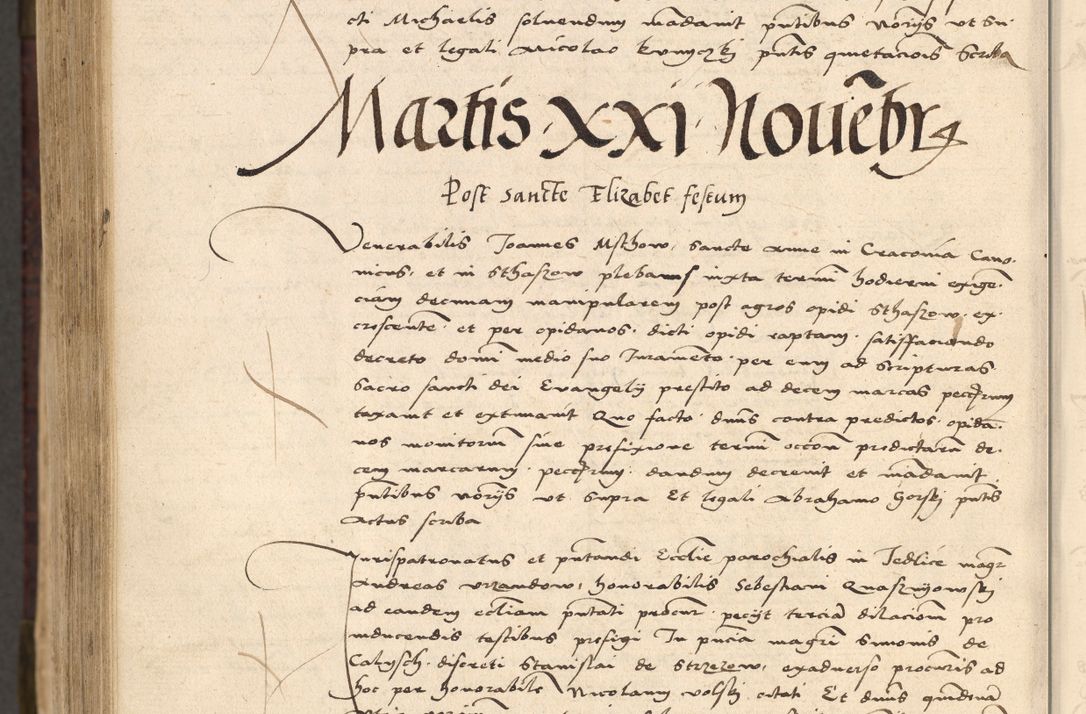 cti Michaelis soluendum mãdauit pñtibus Norijs vt su-
pra et legali Nicolao Kunyczky pñtis quietacionis Scriba
Martis XXI Nouẽbr
Post Sancte Elizabet festum
Venerabilis Joannes Msthow, Sancte Anne in Cracouia Cano-
nicus, et in Sthaszow plebanus iuxta termi hodierni exigen-
ciam decimam manipularem post agros opidi Sthaszow ex-
crescente et per opidanos dicti opidi raptam satisffaciendo
decreto domi medio suo Iuramẽto per eum ad Scripturas
Sacro sancti dei Euangelij prestito ad decem marcas
taxauit et extimauit Quo facto dñus contra predictos opida-
nos monitorium siue prefixione termi occon predictarũ de-
cem marcarum dandum decreuit et mãdauit
pñtibus Norijs vt supra Et legali Abrahamo Gorski pñtis
Actus scriba
Jurispatronatus et pñtandi Ecclie parochialis in Jedlice magr
Andreas Vrzandow, honorabilis Sebestiani
ad eandem eccliam pñtati procur petijt terciã dilacionem pro
inducendis testibus prefigi In pñcia magri Simonis de
Calysch discreti Stanislai de Strzezew, exaduerso procuris ad
hoc per honorabile Nicolaum Volski citati Et dñus